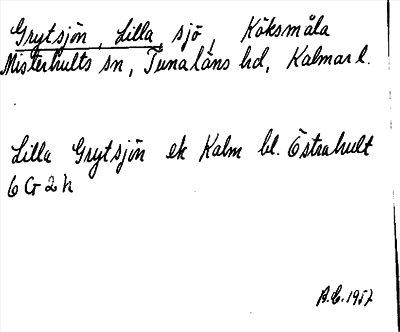 Grytsjön, Lilla, sjö, Köksmåla
Misterhults sn, Tunaläns hd, Kalmar l.
Lilla Grytsjön ek Kalm bl. Östrahult
6 G 2 h
A.C. 1957